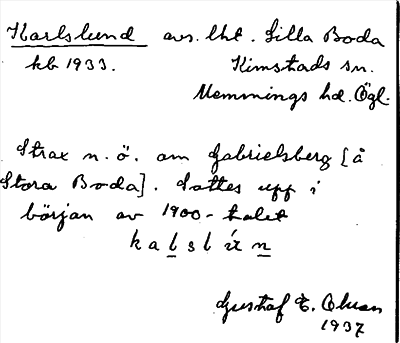 Karlslund avs. lht. Lilla Boda
kb 1933. Kimstads sn.
Memmings hd. Ögl.
Strax n. ö. om Gabrielsberg [å
Stora Boda]. Sattes upp i
början av 1900-talet
Gustaf E. Olson
1937